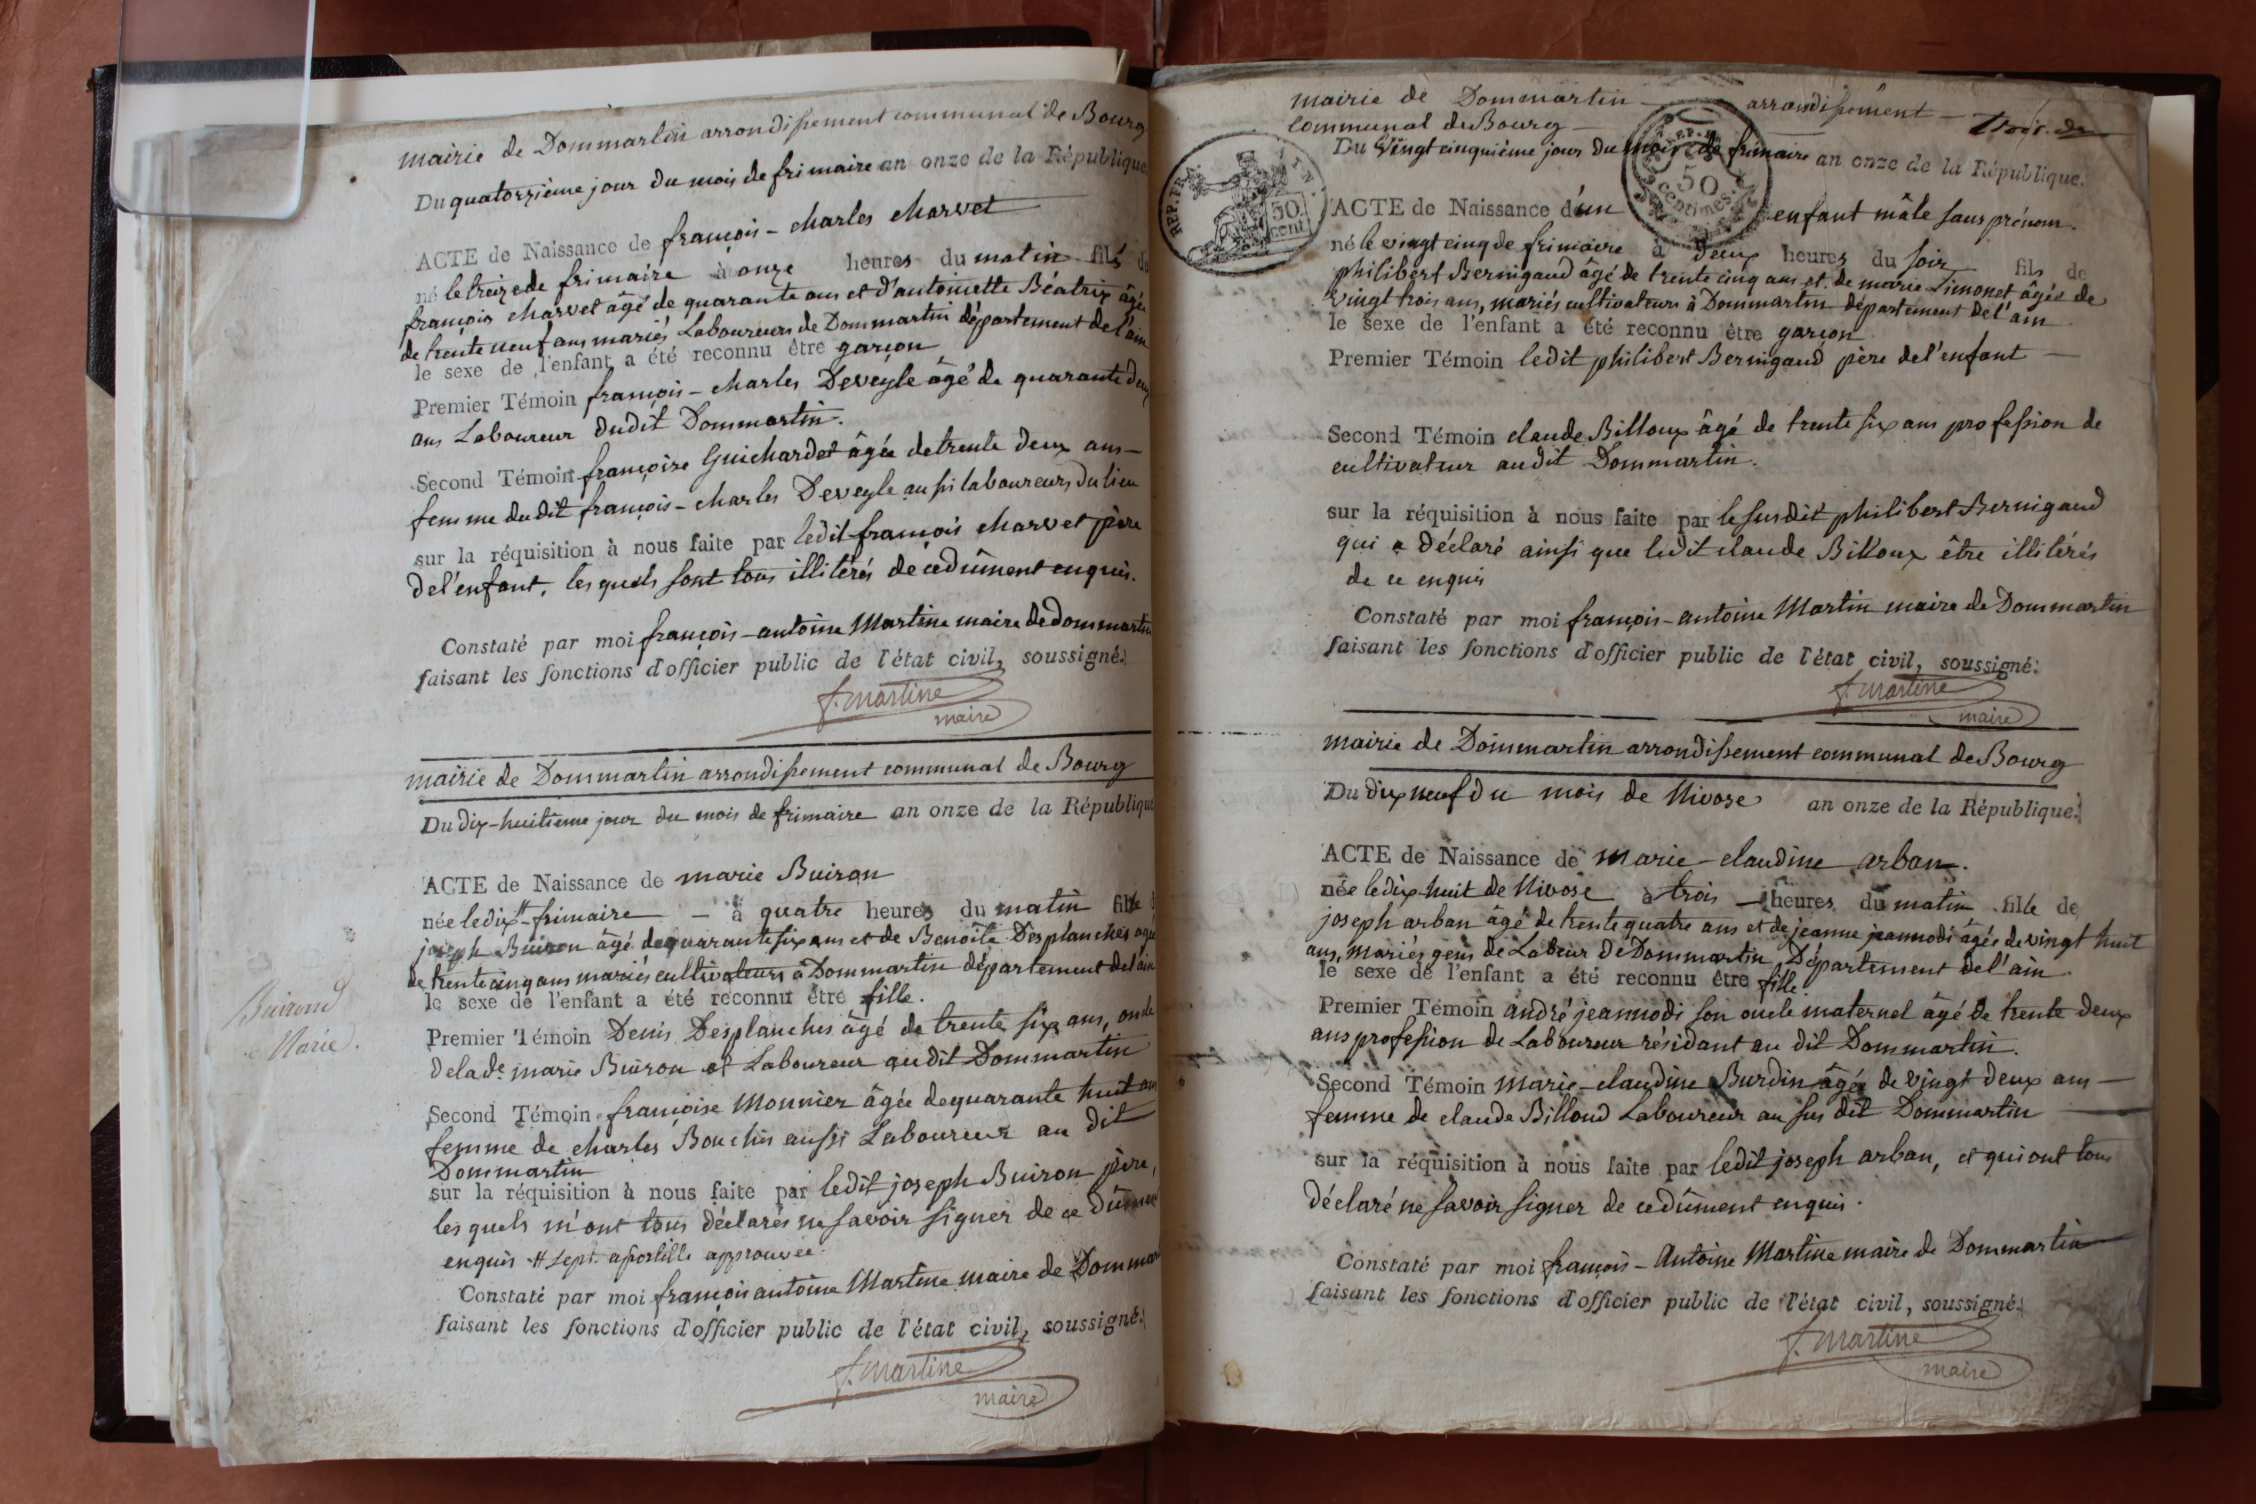 mairie de Dommartin arrondissement communal de Bourg
Du quatorzième jour du mois de frimaire an onze de la République
ACTE de Naissance de françois - charles charvet
né le treize de frimaire à onze heures du matin fils de
françois charvet âgé de quarante ans et d'antoinette Béatrix âgée
de trente neuf ans mariés Laboureurs de Dommartin département de l'ain
le sexe de l'enfant a été reconnu être garçon
Premier Témoin françois - charles Deveyle âgé de quarante deux
ans Laboureur dudit Dommartin.
Second Témoin françoise Guichardet âgée de trente deux ans -
femme dudit françois - charles Deveyle aussi laboureurs du lieu
sur la réquisition à nous faite par ledit françois charvet père
de l'enfant. lesquels sont tous illitérés de ce dûment enquis.
Constaté par moi françois - antoine Martine maire de dommartin
faisant les fonctions d'officier public de l'état civil, soussigné.
f. martine
maire
mairie de Dommartin arrondissement communal de Bourg
Du dix-huitieme jour du mois de frimaire an onze de la République
ACTE de Naissance de marie Buiron
née le dix # frimaire — à quatre heures du matin fille
joseph Buiron âgé de quarante six ans et de Benoite Desplanches agée
de trente cinq ans mariés cultivateurs à Dommartin département de l'ain
le sexe de l'enfant a été reconnu être fille.
Buirond
Marie.
Premier Témoin Denis Desplanches âgé de trente six ans, oncle
de lade. marie Buiron et Laboureur au dit Dommartin
Second Témoin françoise Monnier âgée de quarante huit ans
femme de charles Bouchis aussi Laboureur au dit
Dommartin
sur la réquisition à nous faite par ledit joseph Buiron père,
les quels m'ont tous déclarés ne savoir signer de ce dûment
enquis # sept. apostille approuvée.
Constaté par moi françois antoine Martine maire de Dommar
faisant les fonctions d'officier public de l'état civil, soussigné.
f. martine
maire
mairie de Dommartin — arrondissement —
communal de Bourg —
Du vingt cinquième jour du mois de frimaire an onze de la République.
REP. FRA.
50
cent
50
centimes
ACTE de Naissance d'un enfant mâle sans prénom.
né le vingt cinq de frimaire à deux heures du soir fils de
philibert Bernigaud âgé de trente cinq ans et de marie Limonet âgée de
vingt trois ans, mariés cultivateurs à Dommartin département de l'ain
le sexe de l'enfant a été reconnu être garçon
Premier Témoin ledit philibert Bernigaud père de l'enfant —
Second Témoin claude Billoux âgé de trente six ans profession de
cultivateur audit Dommartin.
sur la réquisition à nous faite par le susdit philibert Bernigaud
qui a déclaré ainsi que ledit claude Billoux être illitérés
de ce enquis
Constaté par moi françois - antoine Martin maire de Dommartin
faisant les fonctions d'officier public de l'état civil, soussigné.
f. martine
maire
mairie de Dommartin arrondissement communal de Bourg
Du dix neuf du mois de Nivose an onze de la République.
ACTE de Naissance de marie - claudine arban.
née le dix huit de Nivose à trois — heures du matin fille de
joseph arban âgé de trente quatre ans et de jeanne jeannodi âgée de vingt huit
ans, mariés gens de Labeur de Dommartin, Département de l'ain.
le sexe de l'enfant a été reconnu être fille.
Premier Témoin andré jeannodi son oncle maternel âgé de trente deux
ans profession de Laboureur résidant au dit Dommartin.
Second Témoin marie - claudine Burdin âgée de vingt deux ans —
femme de claude Billoud Laboureur au sus dit Dommartin —
sur la réquisition à nous faite par ledit joseph arban, et qui ont tous
déclaré ne savoir signer de ce dûment enquis.
Constaté par moi françois - Antoine Martine maire de Dommartin
faisant les fonctions d'officier public de l'état civil, soussigné.
f. martine
maire